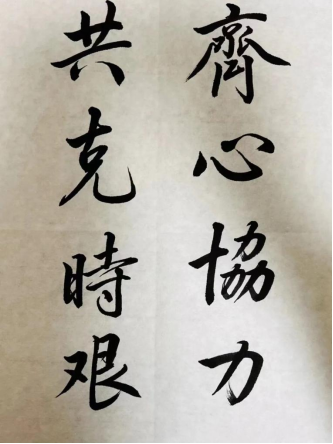 齊心協力
共克時艱